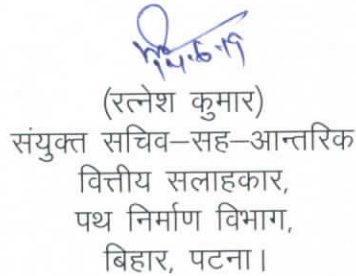 14.6.19
(रत्नेश कुमार)
संयुक्त सचिव–सह–आन्तरिक
वित्तीय सलाहकार,
पथ निर्माण विभाग,
बिहार, पटना।